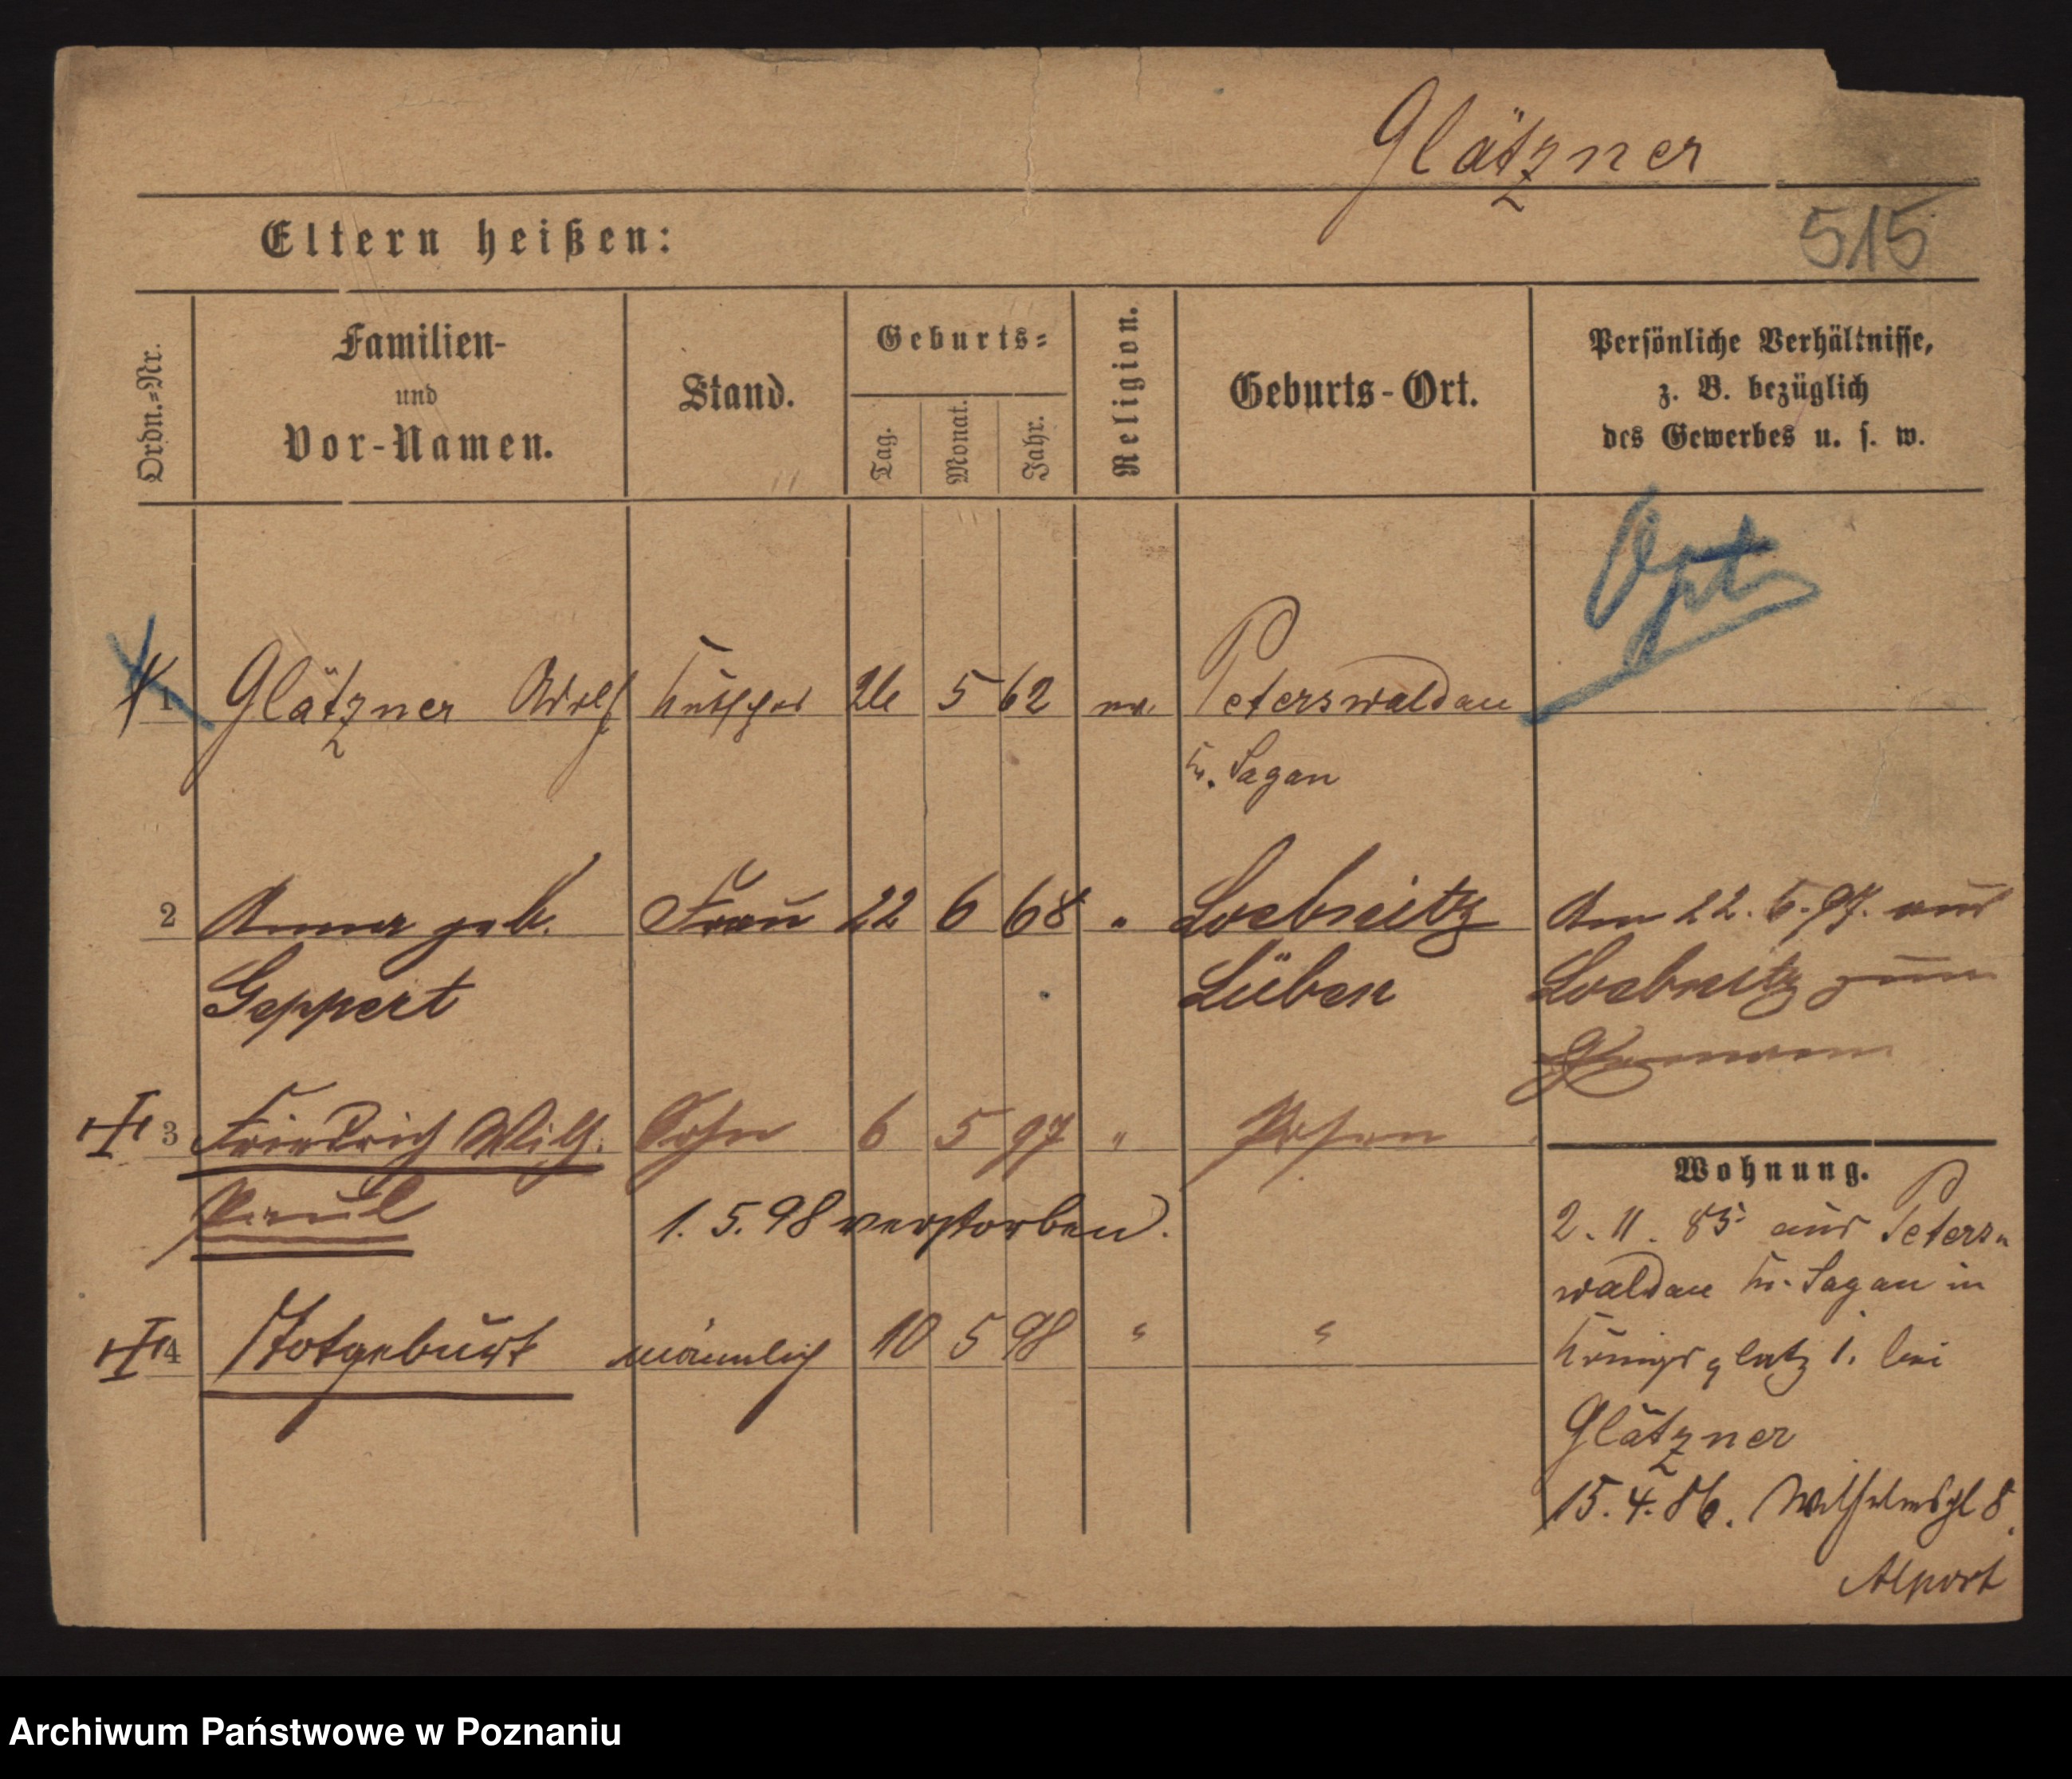 Glätzner
515
Eltern heißen:
Ordn.=Nr.
Familien-
und
Vor-Namen.
Stand.
Geburts=
Tag.
Monat.
Jahr.
Religion.
Geburts-Ort.
Persönliche Verhältnisse,
z. B. bezüglich
des Gewerbes u. s. w.
1 Glätzner Adolf Kutscher 26 5 62 ev. Peterswaldau
Kr. Sagan
2 Anna geb. Frau 22 6 68 " Loebnitz
Geppert Lüben
Am 22. 6. 97. aus
Loebnitz zum
3 Friedrich Wilh. Sohn 6 5 97 " Posen
Paul 1. 5. 98 verstorben.
4 Totgeburt männlich 10 5 98 " "
Wohnung.
2. 11. 85 aus Peters-
waldau Kr. Sagan in
Königsplatz 1. bei
Glätzner
15. 4. 86. Wilhelmspl 8.
Alport
Archiwum Państwowe w Poznaniu